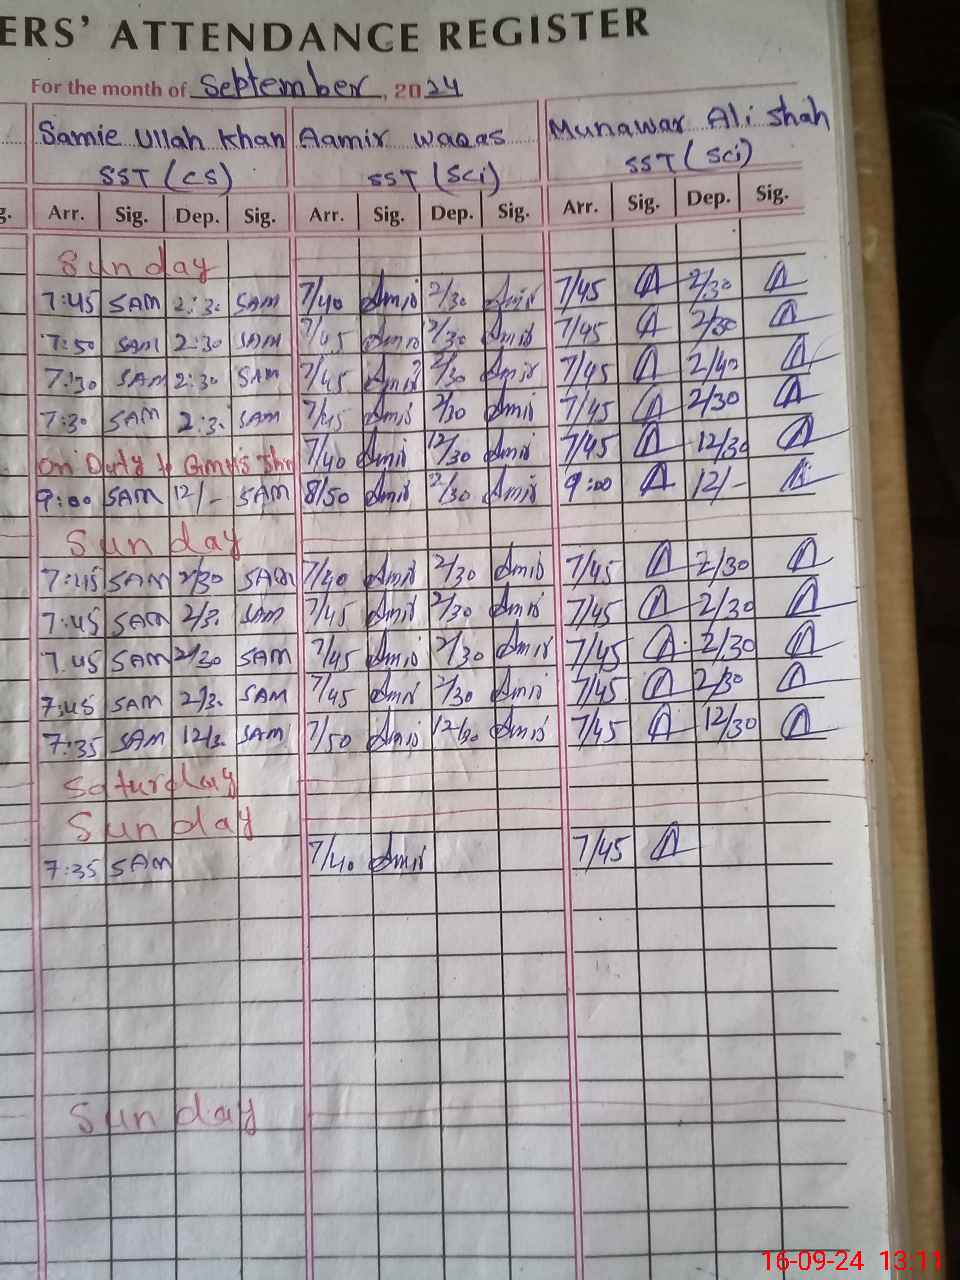 ERS' ATTENDANCE REGISTER
For the month of September, 2024
Samie Ullah Khan Aamir waqas Munawar Ali Shah
SST (CS) SST (Sci) SST (Sci)
g. Arr. Sig. Dep. Sig. Arr. Sig. Dep. Sig. Arr. Sig. Dep. Sig.
Sunday
7:45 SAM 2:3. SAM 7/40 Amir 2/30 Amir 7/45 A 2/30 A
7:50 SAM 2:30 SAM 7/45 Amir 2/30 Amir 7/45 A 2/30 A
7:30 SAM 2:30 SAM 7/45 Amir 2/30 Amir 7/45 A 2/40 A
7:30 SAM 2:3. SAM 7/45 Amir 2/30 Amir 7/45 A 2/30 A
On Duty 7/40 Amir 12/30 Amir 7/45 A 12/30 A
9:00 SAM 12/- SAM 8/50 Amir 2/30 Amir 9:00 A 12/- A
Sunday
7:45 SAM 2/30 SAM 7/40 Amir 2/30 Amir 7/45 A 2/30 A
7:45 SAM 2/3. SAM 7/45 Amir 2/30 Amir 7/45 A 2/30 A
7.45 SAM 2/30 SAM 7/45 Amir 2/30 Amir 7/45 A 2/30 A
7:45 SAM 2/3. SAM 7/45 Amir 2/30 Amir 7/45 A 2/30 A
7:35 SAM 12/3. SAM 7/50 Amir 12/30 Amir 7/45 A 12/30 A
Saturday
Sunday
7:35 SAM 7/40 Amir 7/45 A
Sunday
16-09-24 13:11